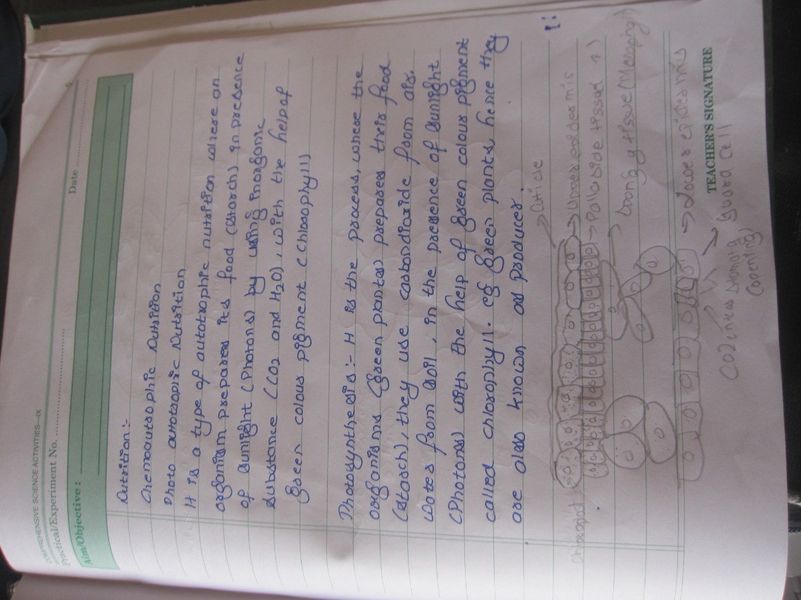 COMPREHENSIVE SCIENCE ACTIVITIES—IX
Practical/Experiment No.
Date
Aim/Objective :
Nutrition:-
Chemoautrophic Nutrition
Photo autotropic Nutrition
It is a type of autotrophic nutrition where an
organism prepares its food (Starch) in presence
of sunlight (Photons) by using inorganic
substance (CO2 and H2O), with the help of
green colour pigment (chlorophyll)
Photosynthesis:- It is the process, where the
organisms (green plants) prepares their food
(Starch), they use carbondioxide from air,
water from soil, in the presence of sunlight
(Photons) with the help of green colour pigment
called chlorophyll. eg green plants, hence they
are also known as producer.
Upper epidermis
Pallaside tissue
Spongy tissue
Lower epidermis
guard cell
CO2 enters through
TEACHER'S SIGNATURE